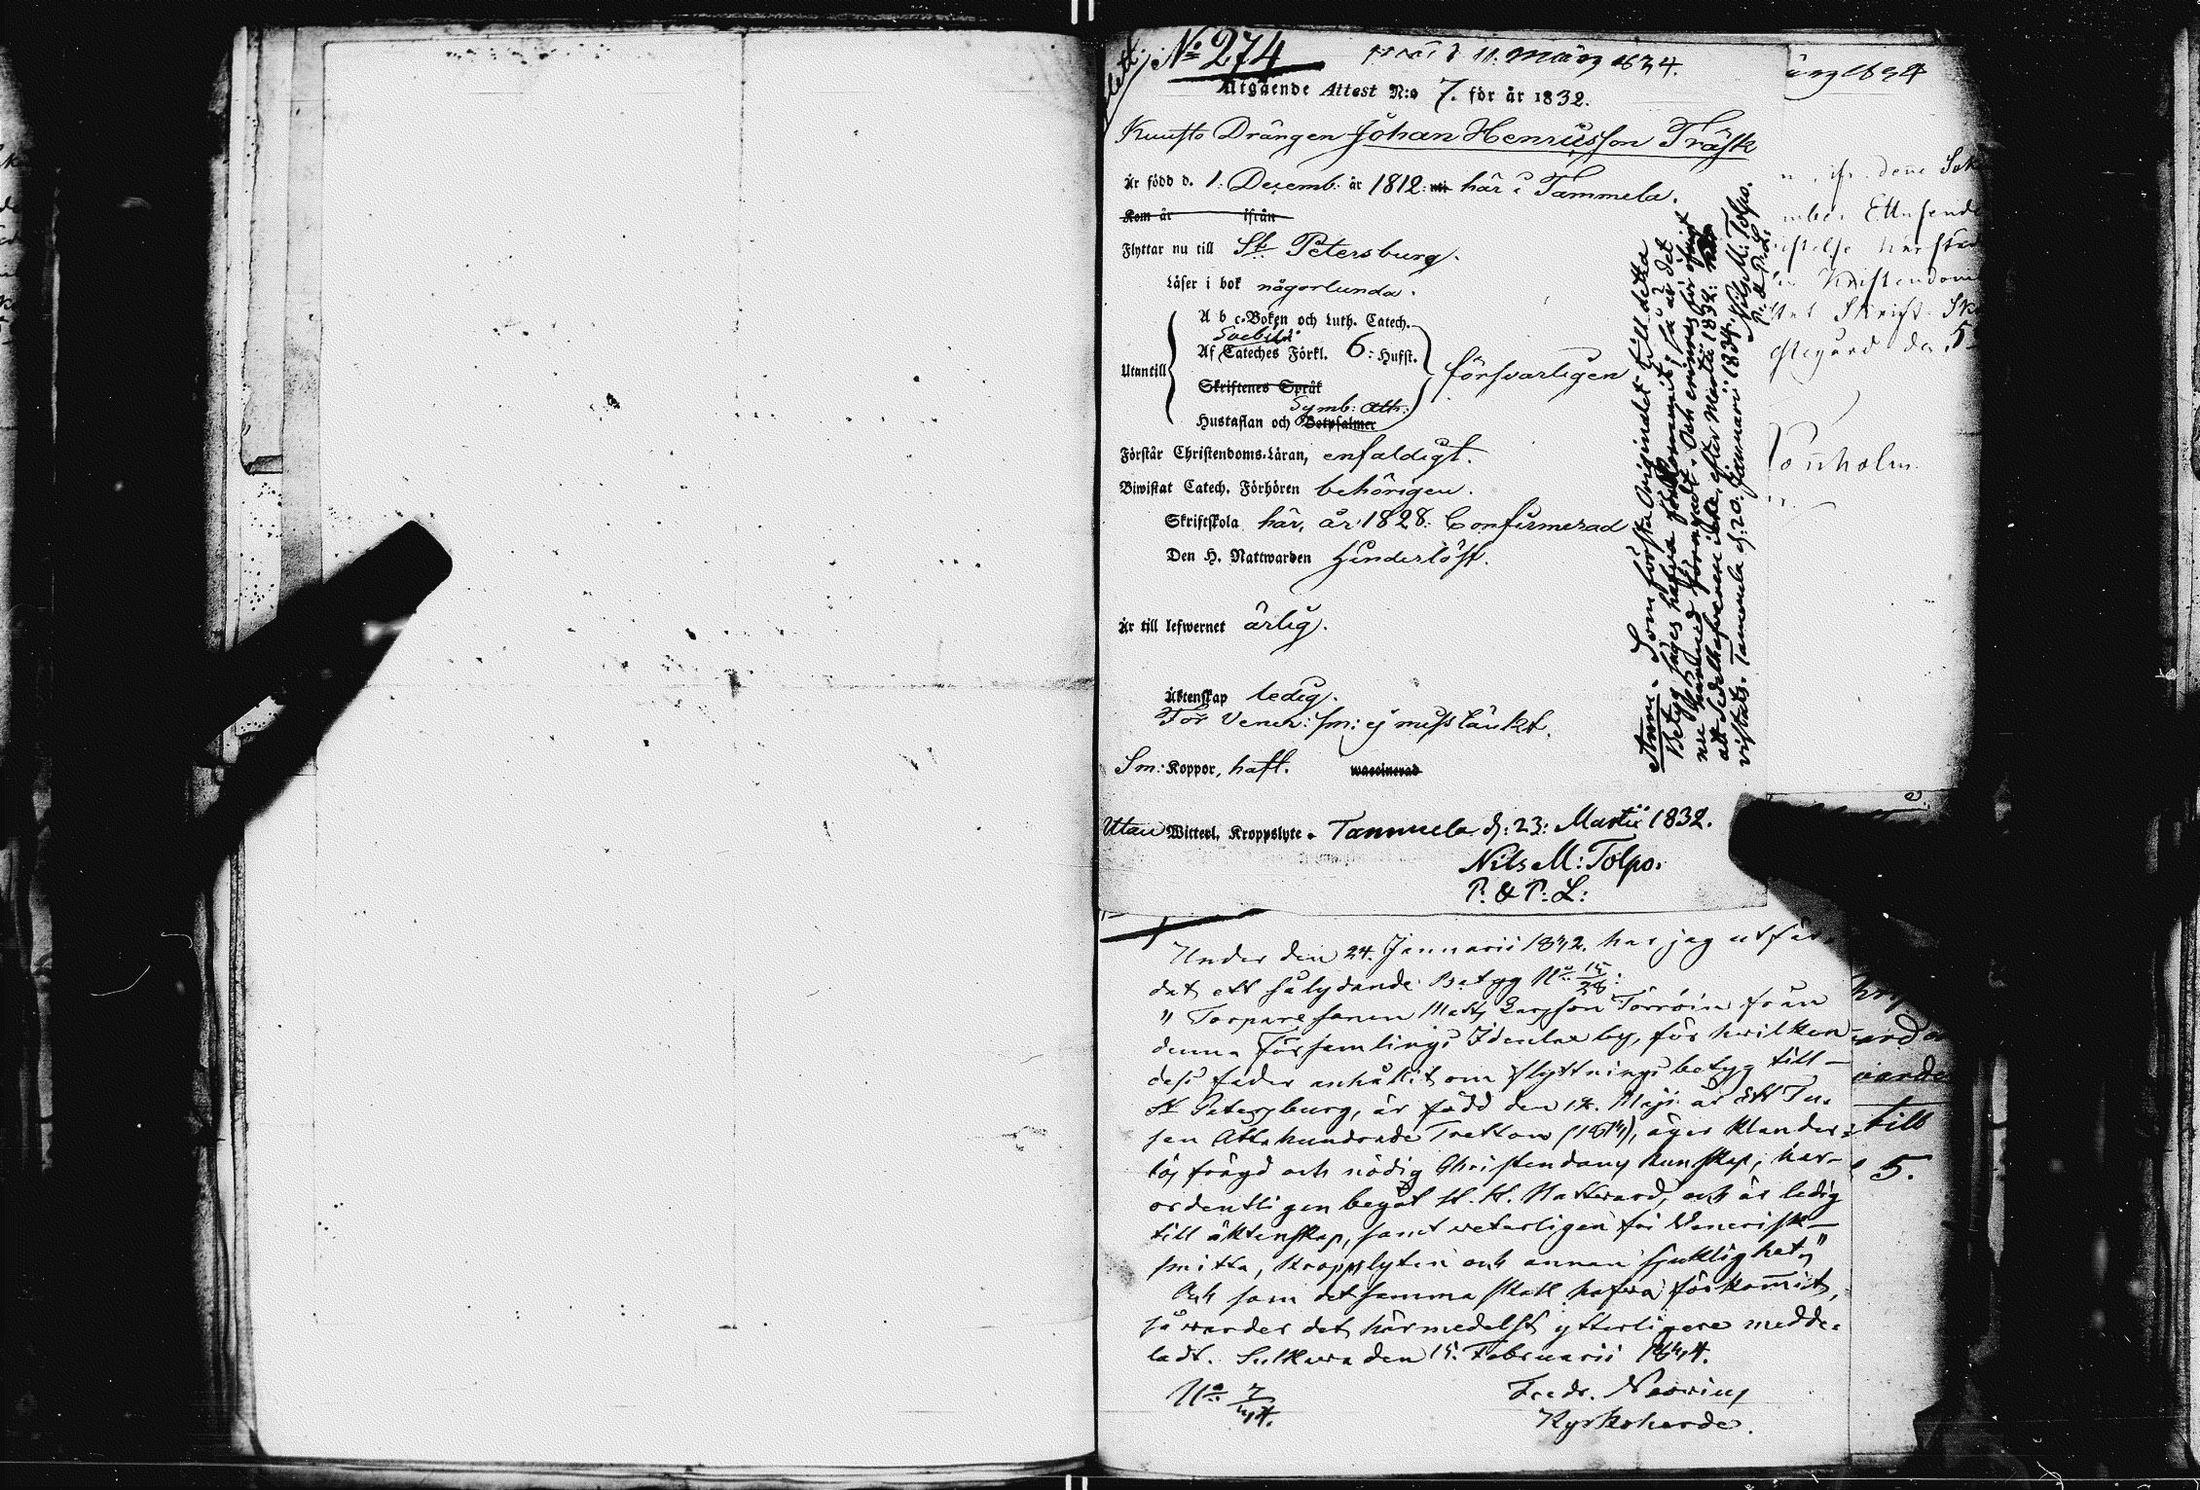 No 274
11. Märtz 1834.
Utgående Attest N:o 7. för år 1832.
Kuusto Drängen Johan Henricsson Träsk
Är född d. 1. Decemb. år 1812: här i Tammela.
Kom år ifrån
Flyttar nu till St Petersburg.
Läser i bok någorlunda.
A b c-Boken och Luth. Catech.
Svebilii
Af Cateches Förkl. 6: Hufst.
Utantill
försvarligen
Skriftenes Språk
Symb: Ath:
Hustaflan och Botpsalmer
Förstår Christendoms-Läran, enfaldigt.
Biwistat Catech. Förhören behörigen.
Skriftskola här, år 1828. Confirmerad
Den H. Nattwarden hinderlöst.
Är till lefwernet ärlig.
Äktenskap ledig.
För Vener: sm: ej misstänkt.
Sm: Koppor, haft. waccinerad
Utan Witterl. Kroppslyte. Tammela d: 23: Martii 1832.
Nils M: Tolpo.
P. & P. L:
Anm. Som första Originalet till detta
Betyg säges hafva förkommit; så är det
nu härmed förnyadt. Och erinras för öfrigt
att Sedelhafvaren icke efter Martii 1832 här
vistats. Tammela d. 20. Januarii 1834. Nils M: Tolpo.
Under den 24. Januarii 1832. har jag utfär-
dat ett så lydande Betyg No 15/32:
" Torparesonen Matts Larsson Törröin från
denna Församlings Idenlax by, för hvilken
dess fader anhållit om flyttningsbetyg till
St Petersburg, är född den 12. Maji år Ett Tu-
sen Åttahundrade Tretton (1813), äger klander-
lös frägd och nödig Christendoms kunskap, har
ordentligen begåt H. H. Nattvard, och är ledig
till äktenskap, samt veterligen fri Venerisk
smitta, kroppslyten och annan sjuklighet,"
Och som det samma skall hafva förkommit,
så varder det härmedelst ytterligare medde-
ladt. Sulkava den 15. Februarii 1834.
No 7/34.
Fredr. Neovius
Kyrkoherde.
till
5.